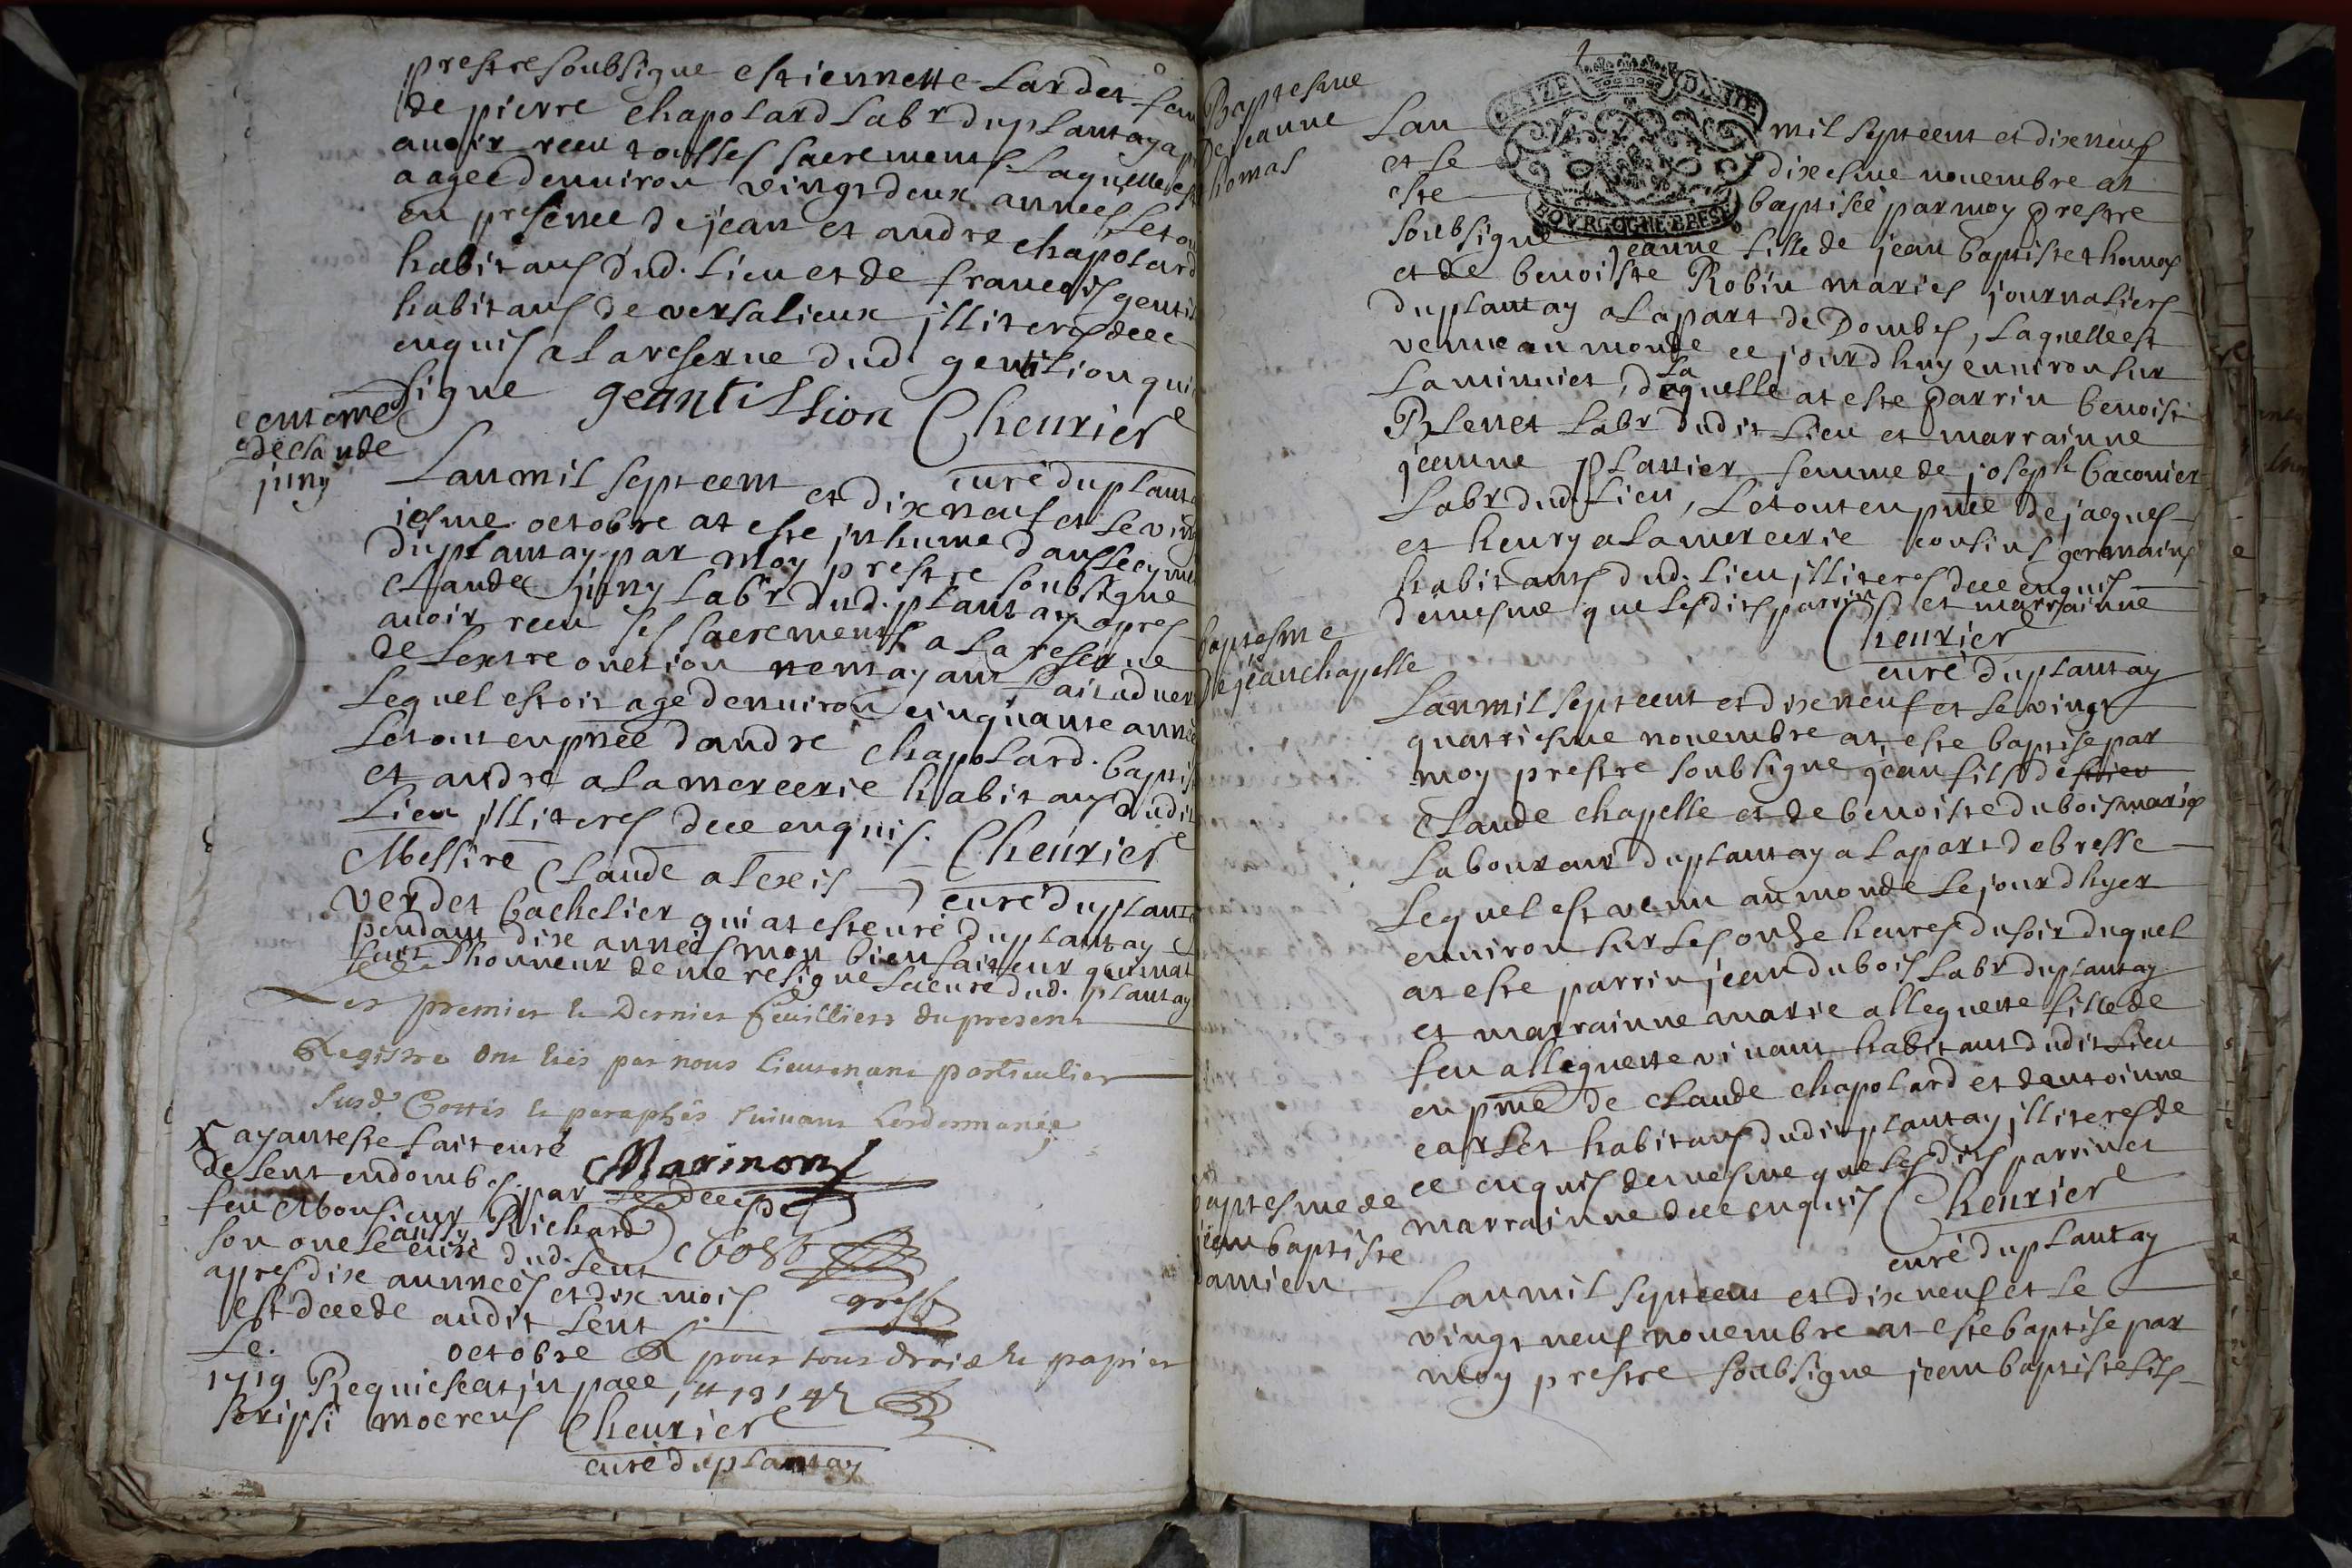 prestre soubsigne estiennette Lardet fem
de pierre chapolard Labr du plantay a
auoir receu tous ses sacrements Laquelle
aagee d'enuiron vingt deux années Le tou
en presence de jean et andre chapolard
habitans dud. Lieu et de francois gentil
habitans de versalieux jlliteres dece
enquis a La reserue dud. gentilion qui
signe geantillion Cheurier
curé du planta
enterme
de claude
juny
Lan mil sept cent et dix neuf et Le ving
iesme octobre at este jnhume dans Le cyme
du plantay par moy prestre soubsigne
claude juny Labr dud. plantay apres
auoir receu ses sacrements a La reserue
de Lextre onction nemayant fait aduer
Lequel estoit agé d'enuiron cinquante année
Le tout en pnce d'andre chapolard. baptis
et andre a Lamercerie habitans dudit
Lieu jlliteres dece enquis. Cheurier
curé du planta
Messire Claude alexis
verdet bachelier qui at esté curé du plantay
pendant dix années mon bienfaiteur qui mat
fait L'honneur de me resigne La cure dud. plantay
Les premier & Dernier feuilliers du present
Registre ont esté par nous Lieutenant particulier
susd. Cottés & paraphés suiuant Lordonnance
Marinon
X ayant este fait curé
de Sent en dombes par Le deces de
feu Monsieur Richard
son oncle aussy curé dud. Sent
apres dix années et dix mois
est decede audit Sent
Le. octobre
pour tous droicts & papier
1719 Requiescat jn pace
scripsi moerens Cheurier
curé du plantay
Baptesme
de jeanne
homas
TREIZE
BOVRGOGNE BRESSE
Lan mil sept cent et dix neuf
et Le dixesme nouembre at
este baptisée par moy prestre
soubsigné jeanne fille de jean baptiste thomas
et de benoiste Robin mariés journaliers
du plantay a La part de Dombes, Laquelle est
venue au monde ce jourd'huy enuiron sur
La minuict, de La quelle at este parrin benoist
Blenet Labr dudit Lieu et marrainne
jeanne Plattier femme de joseph baconier
Labr dud. Lieu, Le tout en pnce de jacques
et henry a Lamercerie cousins germains
habitants dud. Lieu jlliteres dece enquis
de mesme que Lesdits parrin et marrainne
Cheurier
curé du plantay
baptesme
de jean chapelle
Lan mil sept cent et dix neuf et Le vingt
quattriesme nouembre at este baptisé par
moy prestre soubsigne jean fils de
Claude chapelle et de benoiste dubois mariés
Laboureur du plantay a La part de bresse
Lequel est venu au monde Le jour d'hyer
enuiron sur Les onze heures du soir duquel
at este parrin jean dubois Labr du plantay
et marrainne marie allegnette fille de
feu allegnette viuant habitant dudit Lieu
en pnce de claude chapolard et d'antoinne
carlet habitans dudit plantay jlliteres de
ce enquis de mesme que Lesdits parrin et
marrainne dece enquis Cheurier
curé du plantay
baptesme de
jean baptiste
damien
Lan mil sept cent et dix neuf et Le
vingt neuf nouembre at este baptisé par
moy prestre soubsigne jean baptiste fils